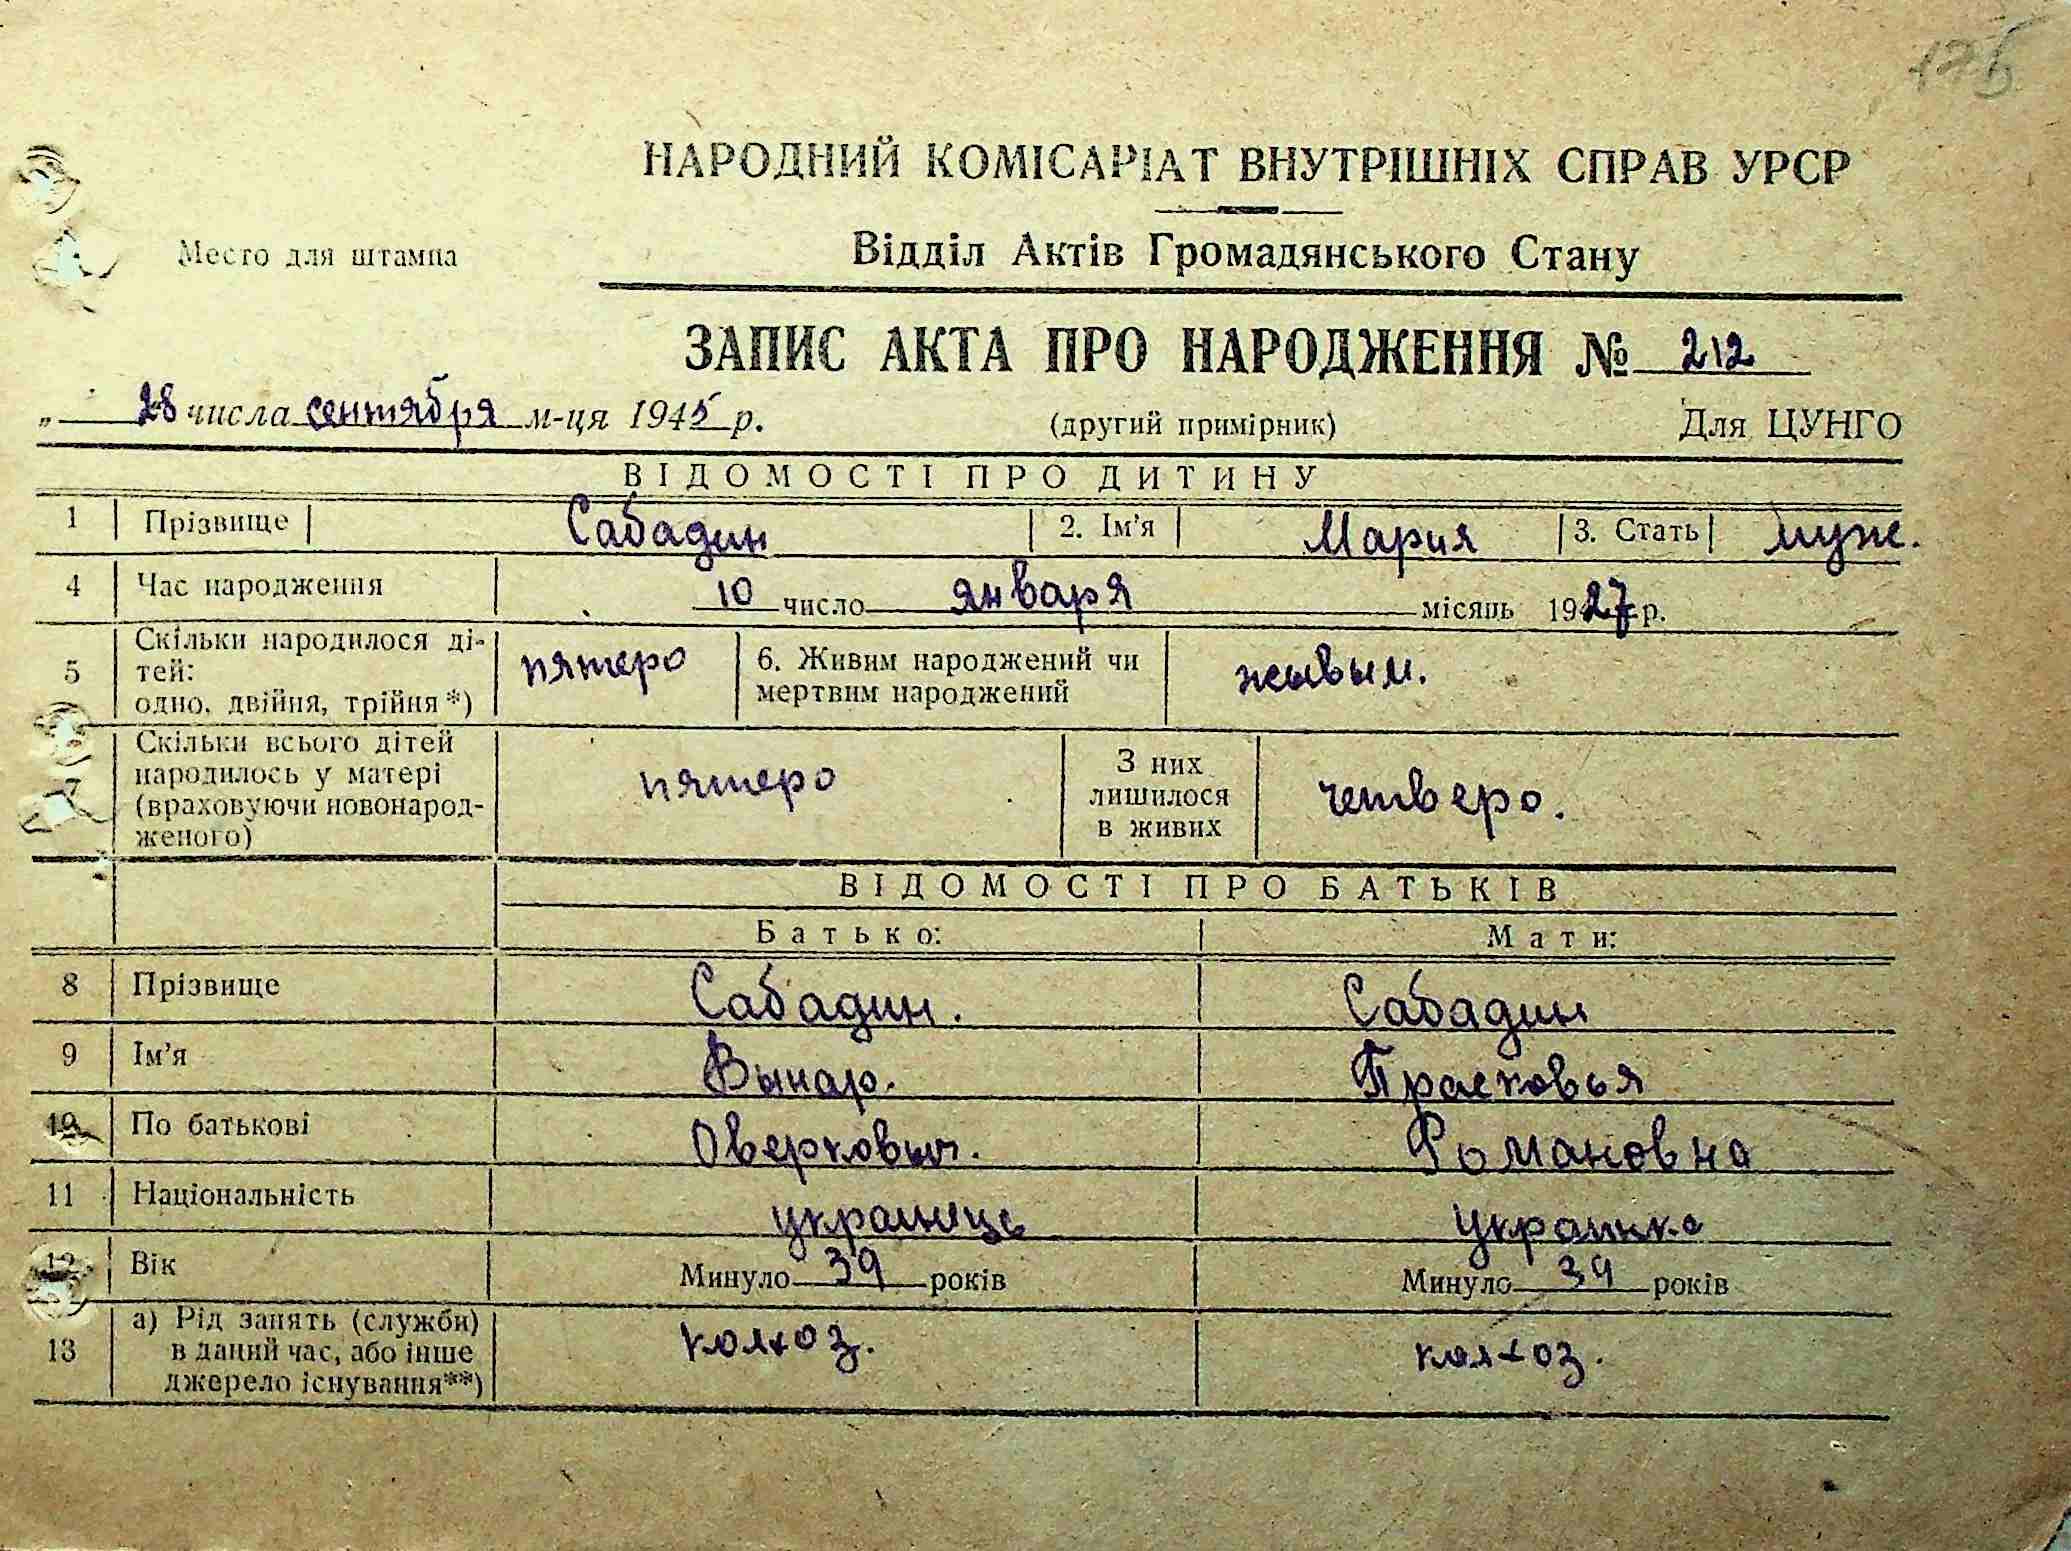 175
НАРОДНИЙ КОМІСАРІАТ ВНУТРІШНІХ СПРАВ УРСР
Место для штампа
Відділ Актів Громадянського Стану
ЗАПИС АКТА ПРО НАРОДЖЕННЯ № 212
„ 28 числа сентября м-ця 1945 р. (другий примірник) Для ЦУНГО
ВІДОМОСТІ ПРО ДИТИНУ
1 Прізвище Сабадин 2. Ім'я Мария 3. Стать муж.
4 Час народження 10 число января місяць 1927 р.
5 Скільки народилося ді-
тей:
одно, двійня, трійня*) пятеро 6. Живим народжений чи
мертвим народжений жывым.
Скільки всього дітей
народилось у матері
(враховуючи новонарод-
женого) пятеро З них
лишилося
в живих четверо.
ВІДОМОСТІ ПРО БАТЬКІВ
Батько: Мати:
8 Прізвище Сабадин. Сабадин
9 Ім'я Вынар. Прасковья
10 По батькові Оверковыч. Романовна
11 Національність украинець украинка
12 Вік Минуло 39 років Минуло 39 років
13 а) Рід занять (служби)
в даний час, або інше
джерело існування**) колхоз. колхоз.